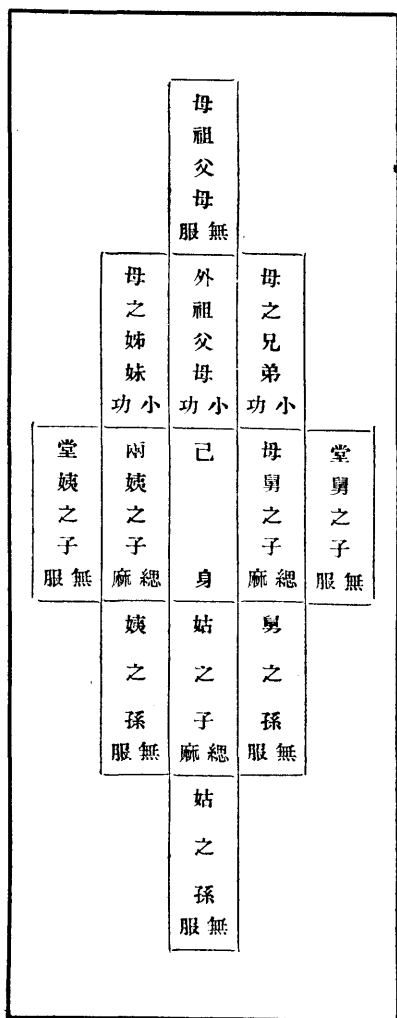 母祖父母無服
母之兄弟小功
外祖父母小功
母之姊妹小功
堂舅之子無服
母舅之子緦麻
己身
兩姨之子緦麻
堂姨之子無服
舅之孫無服
姑之子緦麻
姨之孫無服
姑之孫無服